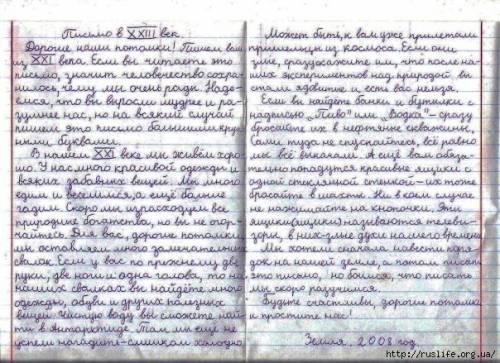 Письмо в XXIII век.
Дорогие наши потомки! Пишем вам
из XXI века. Если вы читаете это
письмо, значит человечество сохра-
нилось, чему мы очень рады. Наде-
емся, что вы выросли мудрее и ра-
зумнее нас, но на всякий случай
пишем это письмо большими круп-
ными буквами.
В нашем XXI веке мы живём хоро-
шо. У нас много красивой одежды и
всяких забавных вещей. Мы много
едим и веселимся, а ещё больше
гадим. Скоро мы израсходуем все
природные богатства, но вы не огор-
чайтесь. Для вас, дорогие потомки,
мы оставляем много замечательных
свалок. Если у вас по прежнему две
руки, две ноги и одна голова, то на
наших свалках вы найдёте много
одежды, обуви и других полезных
вещей. Чистую воду вы сможете най-
ти в Антарктиде. Там мы ещё не
успели нагадить-слишком холодно.
Может быть, к вам уже прилетали
пришельцы из космоса. Если они
злые, сразу скажите им, что после на-
ших экспериментов над природой вы
стали ядовитые и есть вас нельзя.
Если вы найдёте банки и бутылки с
надписью „Пиво" или „Водка"-сразу
бросайте их в нефтяные скважины.
Сами туда не спускайтесь, всё равно
мы всё выкачали. А ещё вам обяза-
тельно попадутся красивые ящики с
одной стеклянной стенкой-их тоже
бросайте в шахты. Ни в коем случае
не нажимайте на кнопочки. Эти
ящики называются телеви-
зоры, в них-злые духи нашего времени.
Мы хотели сначала навести поря-
док на нашей земле, а потом писать
это письмо, но боимся, что писать
мы скоро разучимся.
Будьте счастливы, дорогие потомки
и простите нас!
Земля, 2008 год.
http://ruslife.org.ua/